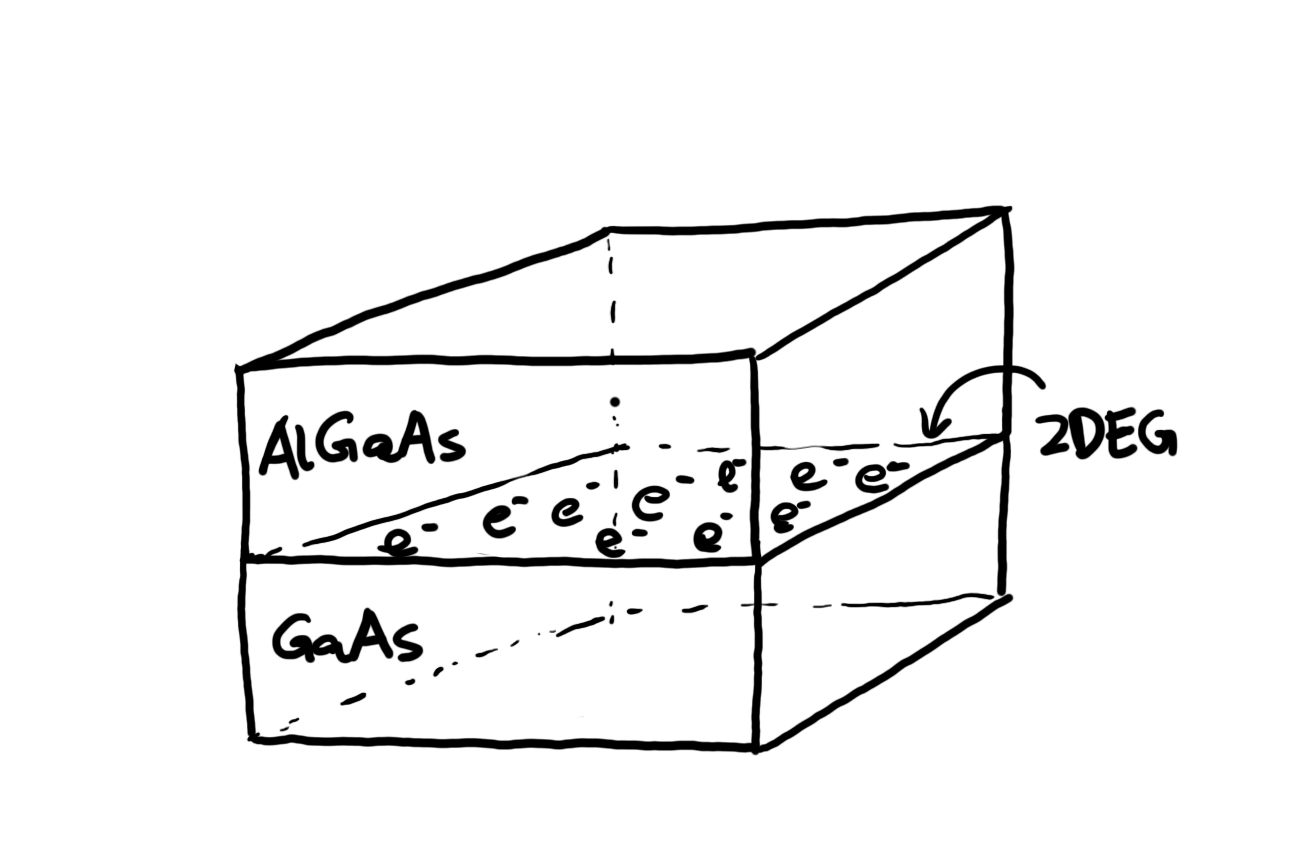 AlGaAs
2DEG
e⁻ e⁻ e⁻ e⁻ e⁻ e⁻ e⁻
e⁻ e⁻ e⁻
GaAs